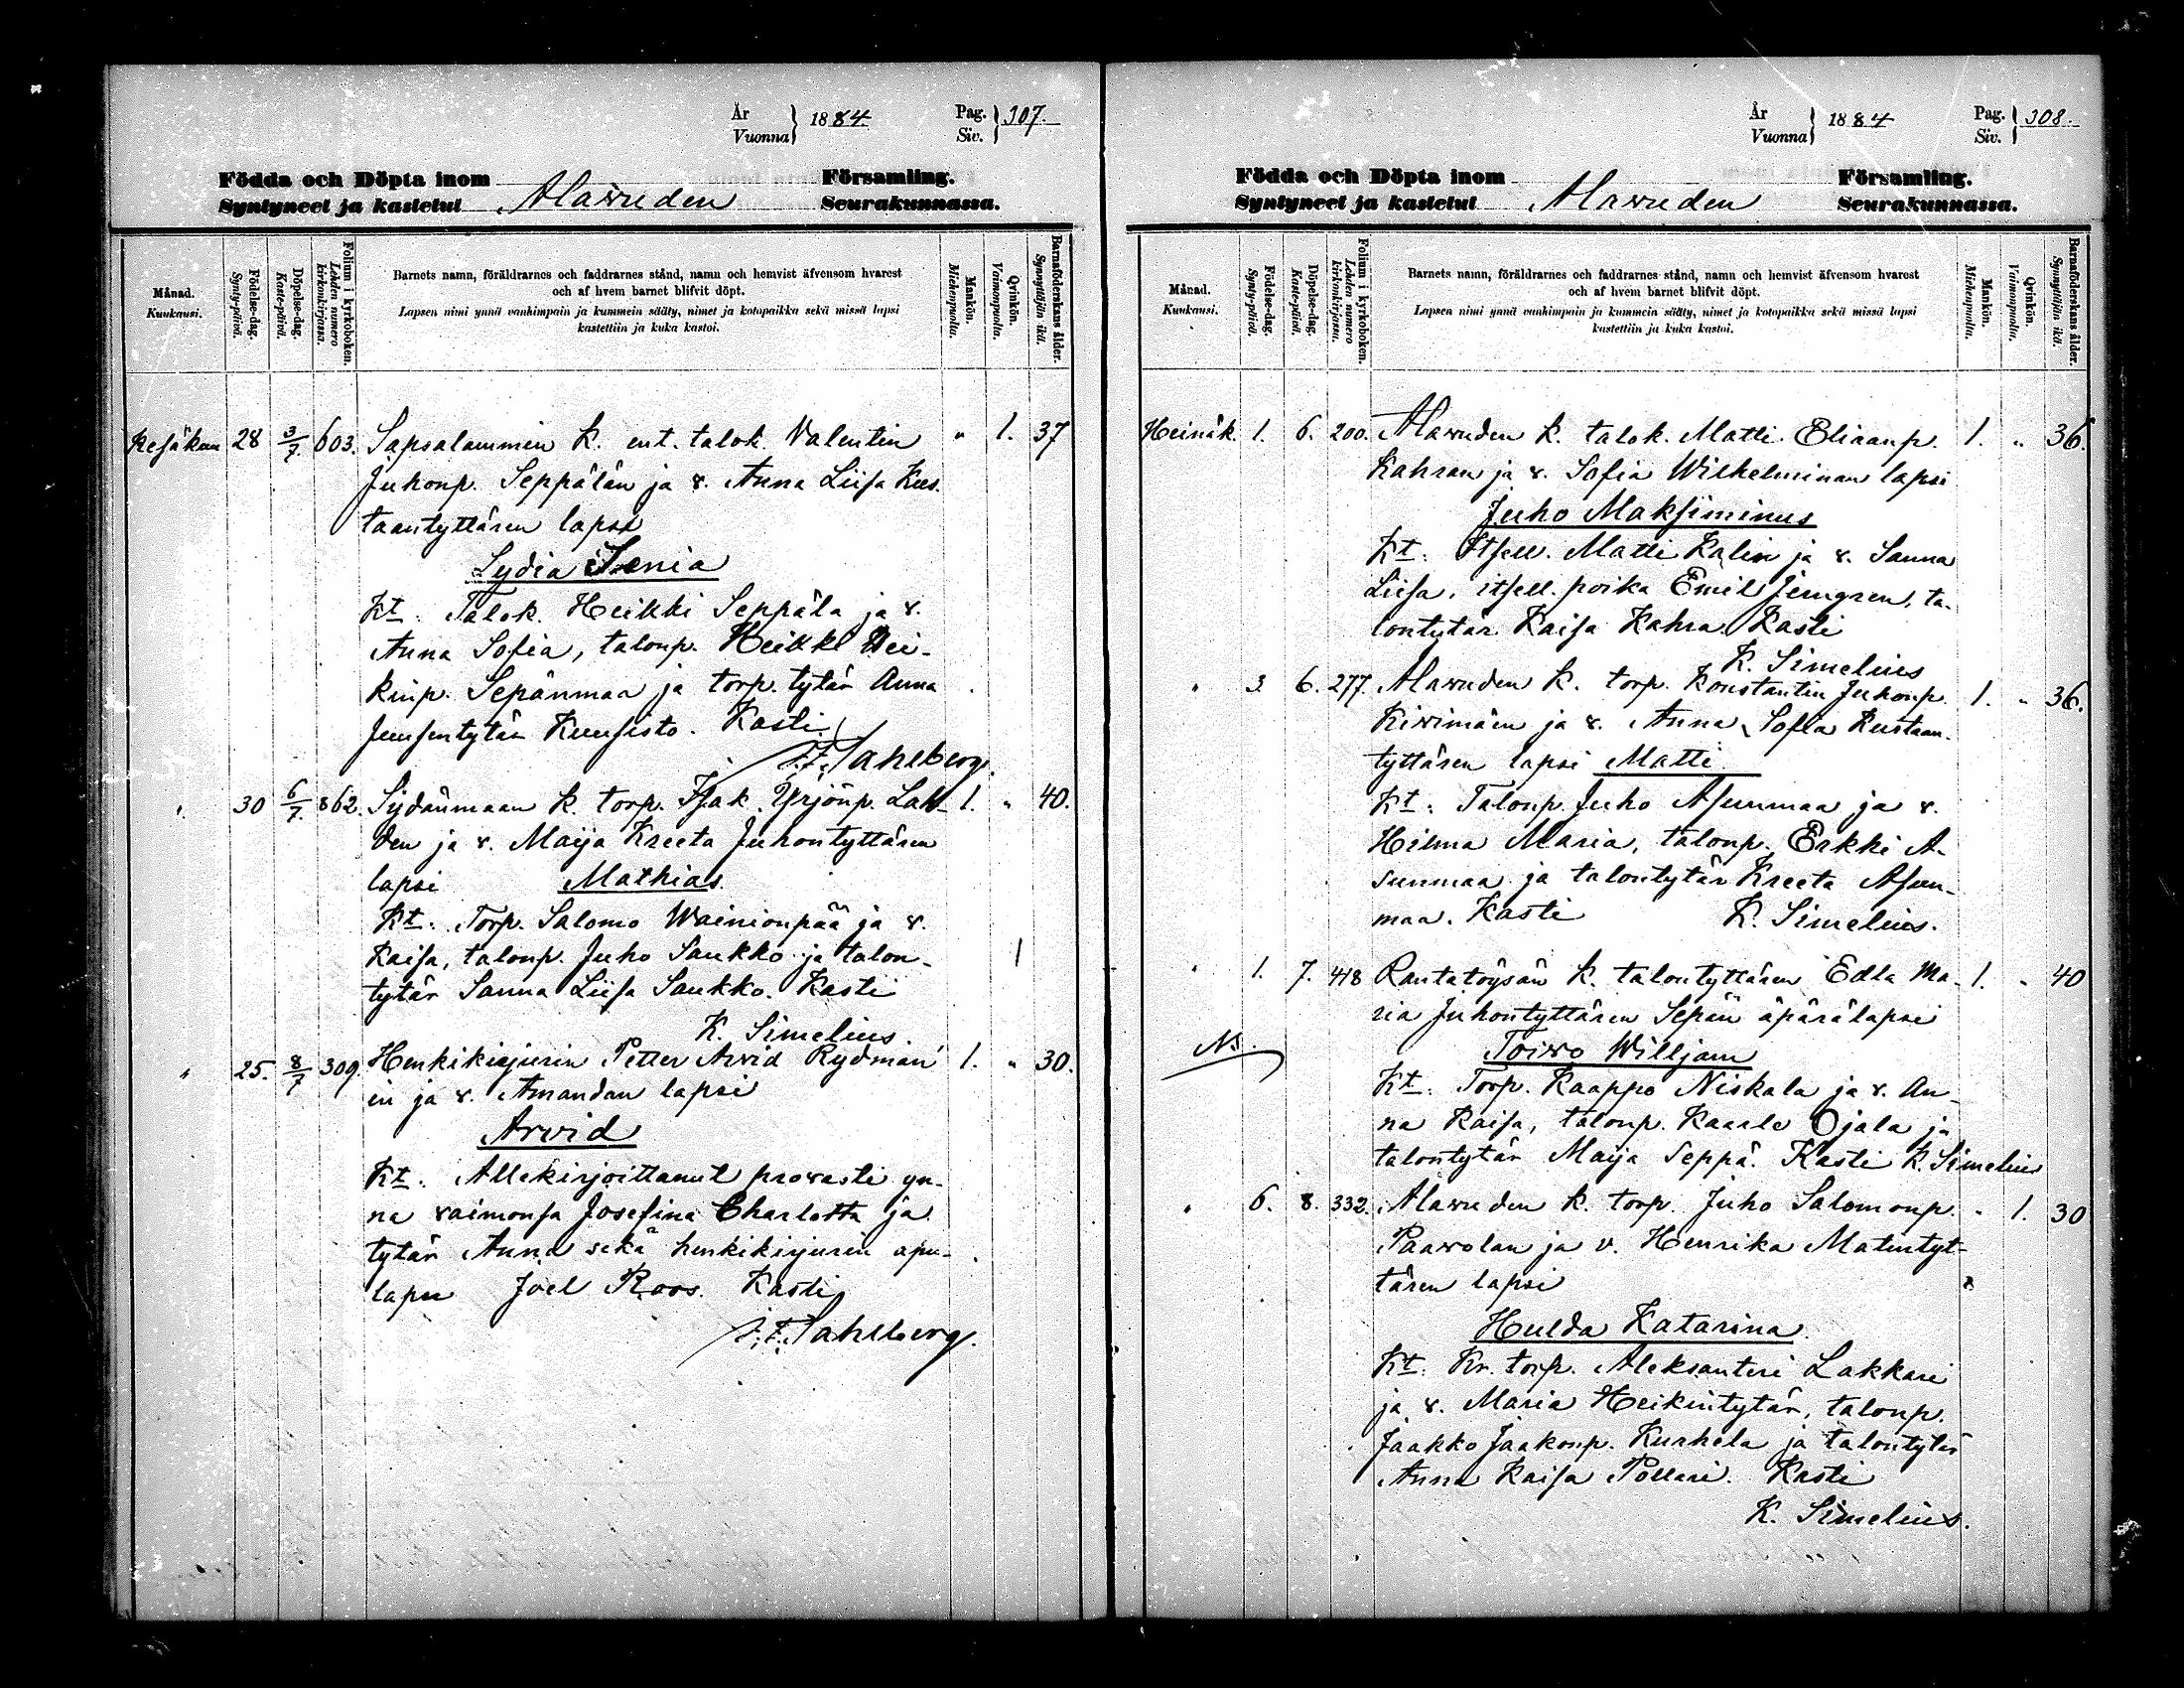 År
Vuonna } 1884 Pag.
Siv. } 307.
Födda och Döpta inom Församling.
Syntyneet ja kastetut Alavuden Seurakunnassa.
Månad.
Kuukausi.
Födelse-dag.
Synty-päivä.
Döpelse-dag.
Kaste-päivä.
Folium i kyrkoboken.
Lehden numero
kirkonkirjassa.
Barnets namn, föräldrarnes och faddrarnes stånd, namn och hemvist äfvensom hvarest
och af hvem barnet blifvit döpt.
Lapsen nimi ynnä vanhimpain ja kummein sääty, nimet ja kotopaikka sekä missä lapsi
kastettiin ja kuka kastoi.
Mankön.
Miehenpuolia.
Qvinkön.
Vaimonpuolia.
Barnaföderskans ålder.
Synnyttäjän ikä.
Kesäkuu 28 3/7 603. Sapsalammin k. ent. talok. Valentin " 1. 37
Juhonp. Seppälän ja v. Anna Liisa Kus-
taantyttären lapsi
Lydia Senia
Kt: Talok. Heikki Seppälä ja v.
Anna Sofia, talonp. Heikki Hei-
kinp. Sepänmaa ja torp. tytär Anna
Juusentytär Kuusisto. Kasti
J. F. Sahlberg.
" 30 6/7 862. Sydänmaan k. torp. Isak Yrjönp. Lah- 1. " 40.
den ja v. Maija Kreeta Juhontyttären
lapsi Mathias.
Kt: Torp. Salomo Wainionpää ja v.
Kaisa, talonp. Juho Saukko ja talon-
tytär Sanna Liisa Saukko. Kasti
K. Simelius.
" 25. 8/7 309. Henkikirjurin Petter Arvid Rydman 1. " 30.
in ja v. Amandan lapsi
Arvid
Kt: Allekirjoittanut provasti yn-
nä vaimonsa Josefina Charlotta ja
tytär Anna sekä henkikirjurin apu-
lapu Joel Roos. Kasti
J. F. Sahlberg.
År
Vuonna } 1884 Pag.
Siv. } 308.
Födda och Döpta inom Församling.
Syntyneet ja kastetut Alavuden Seurakunnassa.
Månad.
Kuukausi.
Födelse-dag.
Synty-päivä.
Döpelse-dag.
Kaste-päivä.
Folium i kyrkoboken.
Lehden numero
kirkonkirjassa.
Barnets namn, föräldrarnes och faddrarnes stånd, namn och hemvist äfvensom hvarest
och af hvem barnet blifvit döpt.
Lapsen nimi ynnä vanhimpain ja kummein sääty, nimet ja kotopaikka sekä missä lapsi
kastettiin ja kuka kastoi.
Mankön.
Miehenpuolia.
Qvinkön.
Vaimonpuolia.
Barnaföderskans ålder.
Synnyttäjän ikä.
Heinäk. 1. 6. 200. Alavuden k. talok. Matti Eliaanp. 1. " 36.
Kahran ja v. Sofia Wilhelminan lapsi
Juho Maksiminus
Kt: Itsell. Matti Kalin ja v. Sanna
Liisa, itsell. poika Emil Jungren, ta-
lontytär Kaisa Kahra. Kasti
K. Simelius
" 3 6. 277. Alavuden k. torp. Konstantin Juhonp. 1. " 36.
Kivimäen ja v. Anna Sofia Kustaan-
tyttären lapsi Matti.
Kt: Talonp. Juho Asunmaa ja v.
Hilma Maria, talonp. Erkki A-
sunmaa ja talontytär Kreeta Asun-
maa. Kasti K. Simelius.
" 1. 7. 418 Rantatöysän k. talontyttären Edla Ma- 1. " 40
ria Juhontyttären Sepän äpärälapsi
Ns. Toivo Willjam
Kt: Torp. Kaappo Niskala ja v. An-
na Kaisa, talonp. Kaarle Ojala ja
talontytär Maija Seppä. Kasti K. Simelius
" 6. 8. 332. Alavuden k. torp. Juho Salomonp. " 1. 30
Paavolan ja v. Henrika Matintyt-
tären lapsi
Hulda Katarina
Kt: Kr. torp. Aleksanteri Lakkari
ja v. Maria Heikintytär, talonp.
Jaakko Jaakonp. Kurhela ja talontytär
Anna Kaisa Pollari. Kasti
K. Simelius.